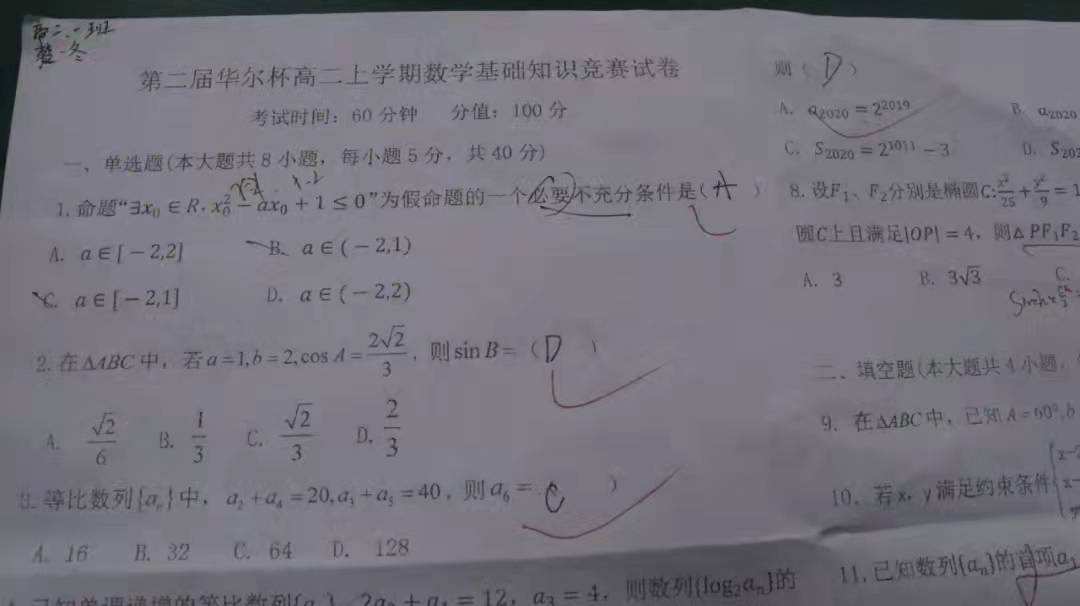 高二.一班
第二届华尔杯高二上学期数学基础知识竞赛试卷
考试时间：60分钟 分值：100分
一、单选题(本大题共8小题，每小题5分，共40分)
1.命题“∃x₀∈R，x₀²－ax₀＋1≤0”为假命题的一个必要不充分条件是(A)
A. a∈[－2,2] B. a∈(－2,1)
C. a∈[－2,1] D. a∈(－2,2)
2.在△ABC中，若a=1,b=2,cos A=2√2/3，则sin B=（D）
A. √2/6 B. 1/3 C. √2/3 D. 2/3
3.等比数列{aₙ}中，a₂+a₄=20,a₃+a₅=40，则a₆= C ）
A. 16 B. 32 C. 64 D. 128
已知单调递增的等比数列 12，a₃＝4，则数列{log₂aₙ}的
则（D）
A. a₂₀₂₀＝2²⁰¹⁹ B. a₂₀₂₀
C. S₂₀₂₀＝2¹⁰¹¹－3 D. S₂₀₂
8.设F₁、F₂分别是椭圆C:x²/25＋y²/9＝1
圆C上且满足|OP|＝4，则△PF₁F₂
A. 3 B. 3√3 C.
二、填空题(本大题共4小题，
9. 在△ABC中，已知A=60°,b
10. 若x，y满足约束条件
11.已知数列{aₙ}的首项a₁